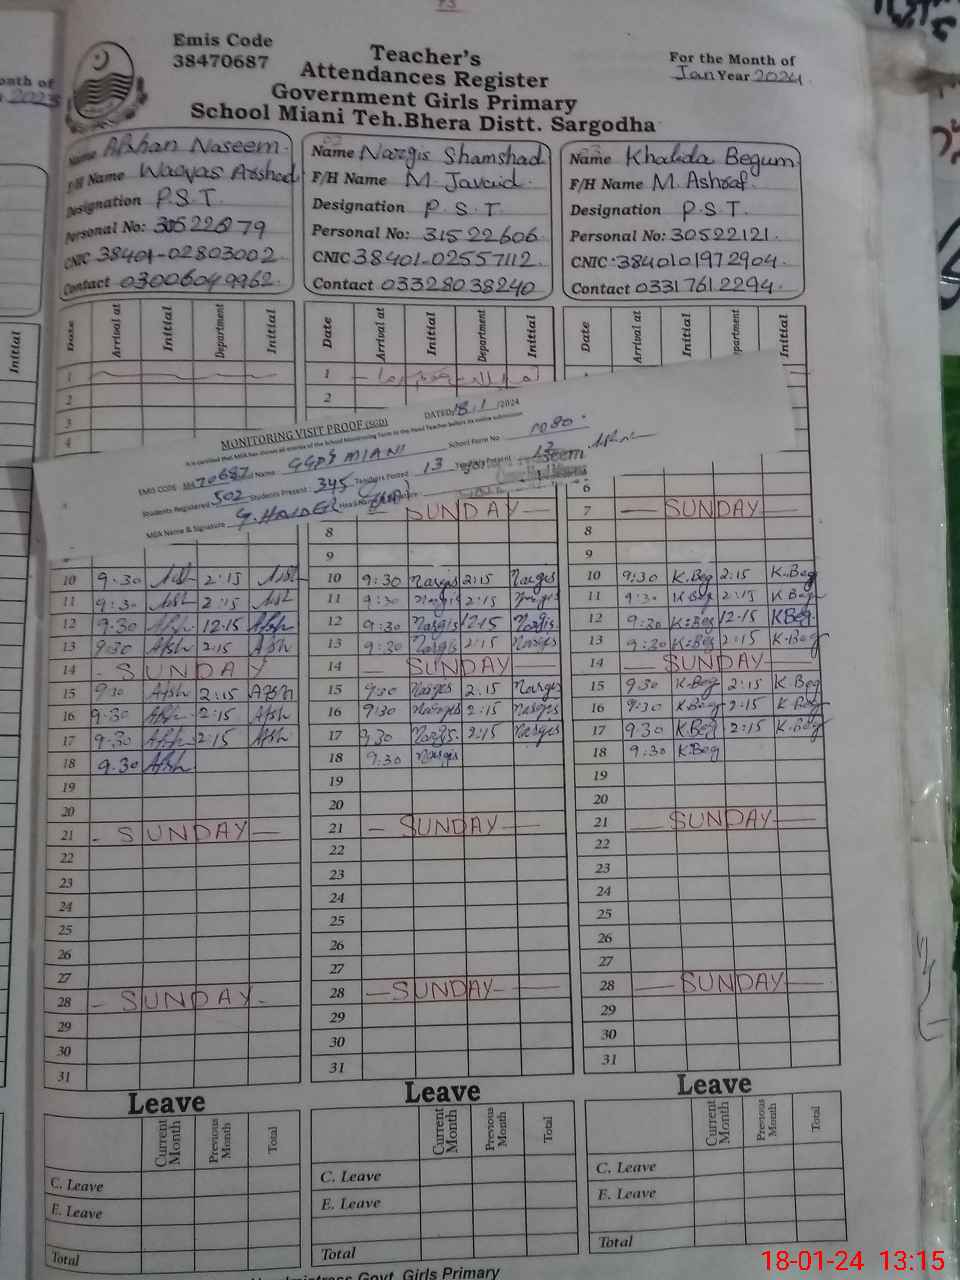 Emis Code
38470687
Teacher's
Attendances Register
Government Girls Primary
School Miani Teh.Bhera Distt. Sargodha
For the Month of
Jan Year 2024
Name Afshan Naseem
F/H Name Waqas Arshad
Designation P.S.T.
Personal No:
CNIC 38401-02803002
Contact 03006049962
Name Nargis Shamshad
F/H Name M. Javaid
Designation P.S.T
Personal No: 31522606
CNIC 38401-02557112
Contact 03328038240
Name Khalida Begum
F/H Name M. Ashraf
Designation P.S.T.
Personal No: 30522121
CNIC 3840101972904
Contact 03317612294
Date Arrival at Initial Department Initial
Date Arrival at Initial Department Initial
Date Arrival at Initial partment Initial
1 1
2 2
3
4
MONITORING VISIT PROOF (SGD) DATED 18.1 /2024
EMIS CODE GGPS MIANI School Form No
Students Registered 502 Students Present: 345 Teachers Posted 13 Teachers Present 13
MEA Name & Signature G. HAIDER
6
SUNDAY 7 SUNDAY
8 8
9 9
10 9.30 Afsh 2:15 Afsh 10 9:30 Nargis 2:15 Nargis 10 9:30 K.Beg 2:15 K.Beg
11 9:30 Afsh 2:15 Afsh 11 9:30 Nargis 2:15 Nargis 11 9:30 K.Beg 2:15 K.Beg
12 9:30 Afsh 12.15 Afsh 12 9:30 Nargis 12.15 Nargis 12 9:30 K.Beg 12.15 K.Beg
13 9:30 Afsh 2:15 Afsh 13 9:30 Nargis 2:15 Nargis 13 9:30 K.Beg 2:15 K.Beg
14 SUNDAY 14 SUNDAY 14 SUNDAY
15 930 Afsh 2:15 Afsh 15 9:30 Nargis 2.15 Nargis 15 9:30 K.Beg 2:15 K.Beg
16 9.30 Afsh 2:15 Afsh 16 9:30 Nargis 2:15 Nargis 16 9:30 K.Beg 2:15 K.Beg
17 9.30 Afsh 2:15 Afsh 17 9.30 Nargis 2:15 Nargis 17 9:30 K.Beg 2:15 K.Beg
18 9.30 Afsh 18 9:30 Nargis 18 9:30 K.Beg
19 19 19
20 20 20
21 SUNDAY 21 SUNDAY 21 SUNDAY
22 22 22
23 23 23
24 24 24
25 25 25
26 26 26
27 27 27
28 SUNDAY 28 SUNDAY 28 SUNDAY
29 29 29
30 30 30
31 31 31
Leave Leave Leave
Current Month Previous Month Total Current Month Previous Month Total Current Month Previous Month Total
C. Leave C. Leave C. Leave
E. Leave E. Leave E. Leave
Total Total Total
Govt. Girls Primary
18-01-24 13:15